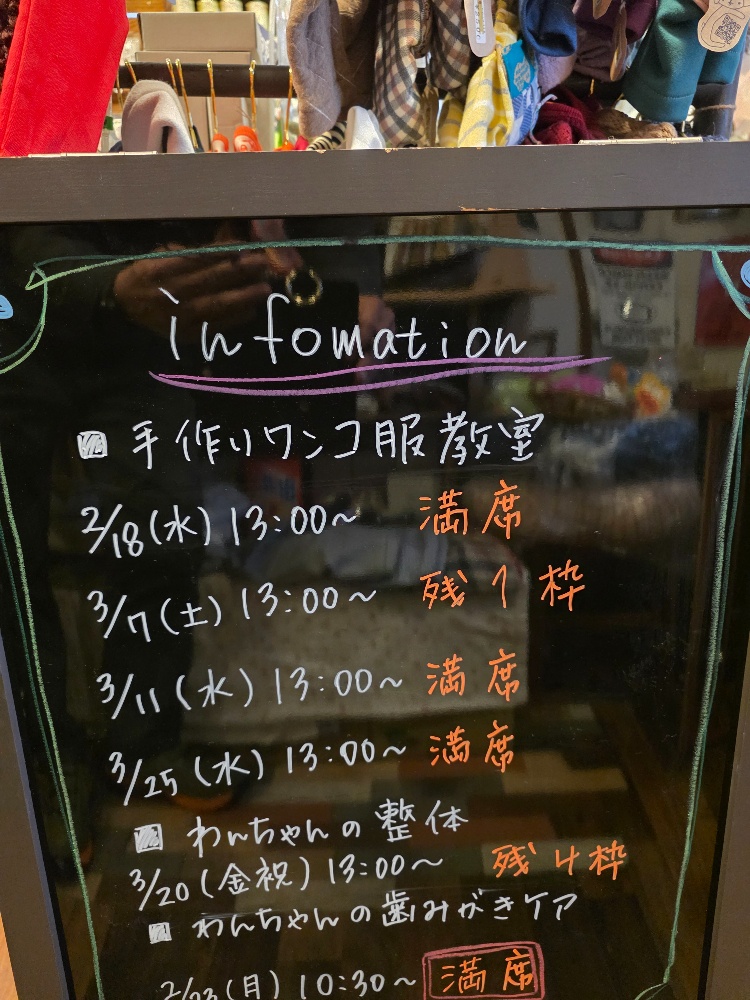 infomation
■ 手作りワンコ服教室
2/18(水) 13:00~ 満席
3/7(土) 13:00~ 残1枠
3/11(水) 13:00~ 満席
3/25(水) 13:00~ 満席
■ わんちゃんの整体
3/20(金祝) 13:00~ 残4枠
■ わんちゃんの歯みがきケア
2/23(月) 10:30~ 満席